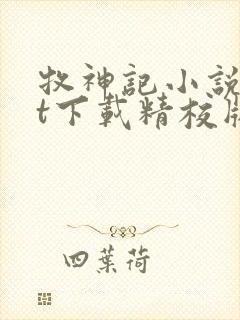 牧神記小說
t下載精校版
四葉荷